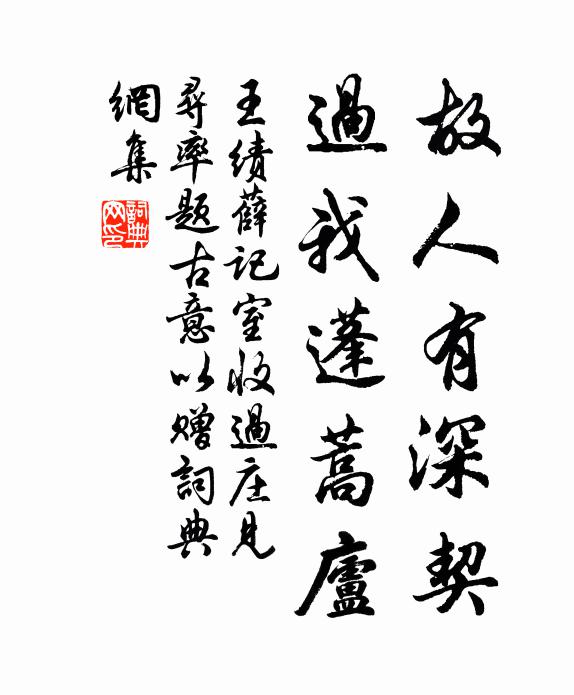 故人有深契
過我蓬蒿廬
王績薛記室收過庄見
尋率题古意以赠詞典
網集
詞典网印